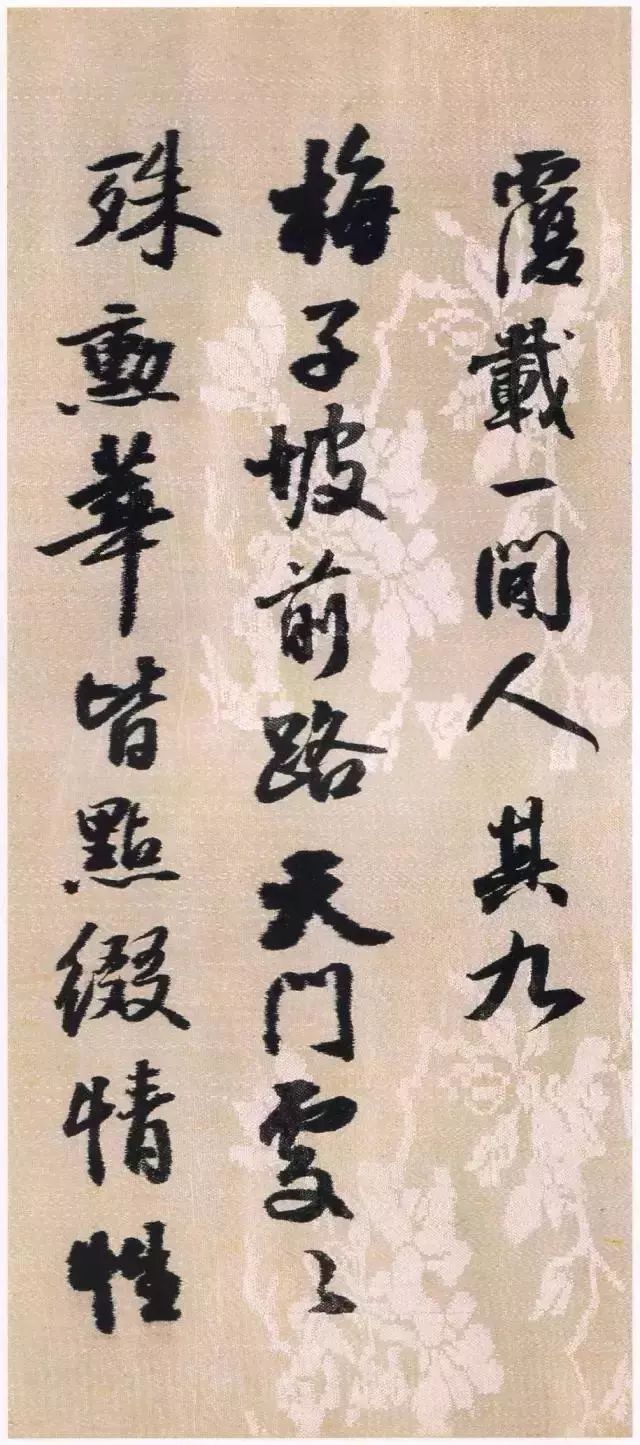 覆載一閒人其九
梅子坡前路天門處々
殊勳華皆點綴情性